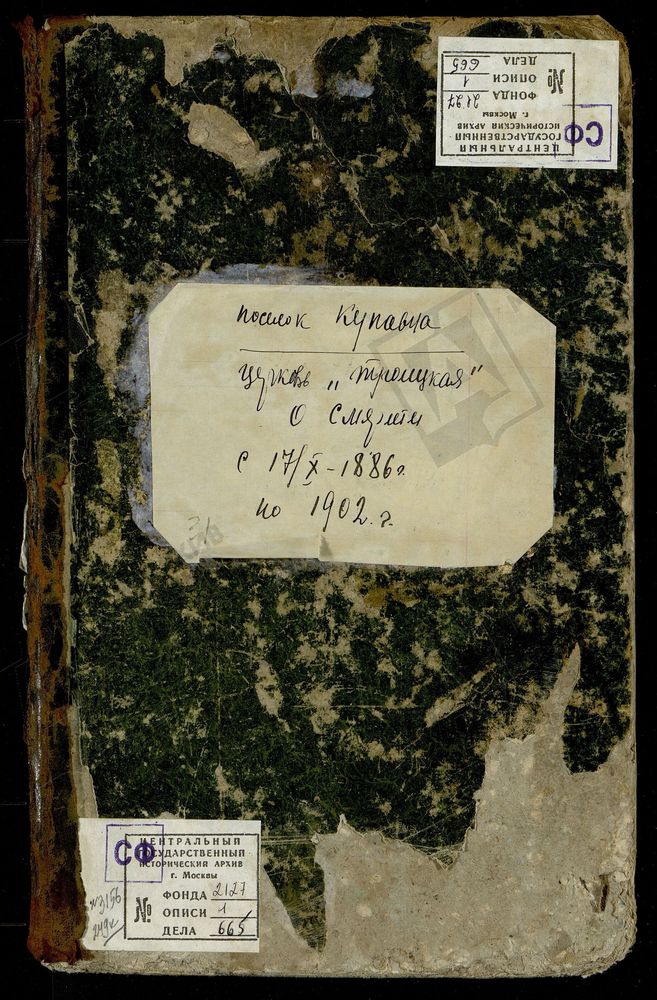 ЦЕНТРАЛЬНЫЙ
ГОСУДАРСТВЕННЫЙ
ИСТОРИЧЕСКИЙ АРХИВ
г. Москвы
СФ
№
ФОНДА 2127
ОПИСИ 1
ДЕЛА 665
поселок Купавна
церковь „Троицкая"
о смерти
с 17/X-1886г.
по 1902.г.
СФ
ЦЕНТРАЛЬНЫЙ
ГОСУДАРСТВЕННЫЙ
ИСТОРИЧЕСКИЙ АРХИВ
г. Москвы
№
ФОНДА 2127
ОПИСИ 1
ДЕЛА 665